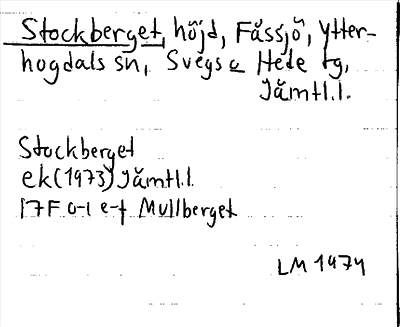 Stockberget, höjd, Fåssjö, Ytter-
hogdals sn, Svegs o Hede tg,
Jämtl.l.
Stockberget
ek (1973) Jämtl.l.
17F a-i e-f Mullberget
LM 1974